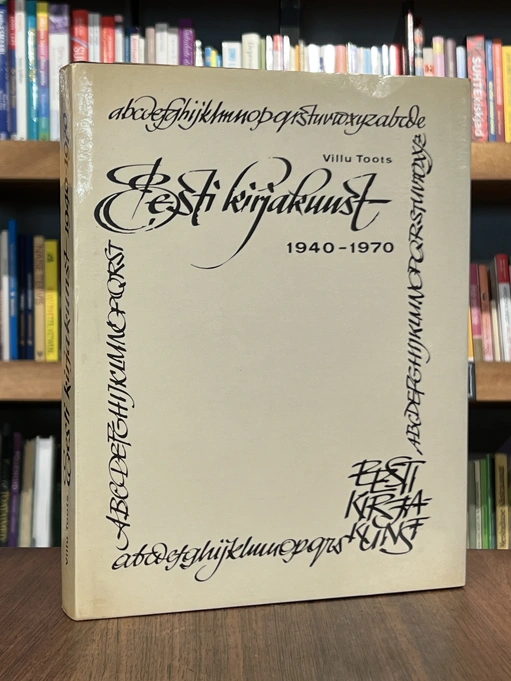 abcdefghijklmnopqrstuvwxyzabcde
Villu Toots
Eesti kirjakunst
1940-1970
ABCDEFGHIJKLMNOPQRST
ABCDEFGHIJKLMNOPQRSTUVWXYZ
EESTI
KIRJA-
KUNST
abcdefghijklmnopqrs
Villu Toots Eesti kirjakunst 1940-1970